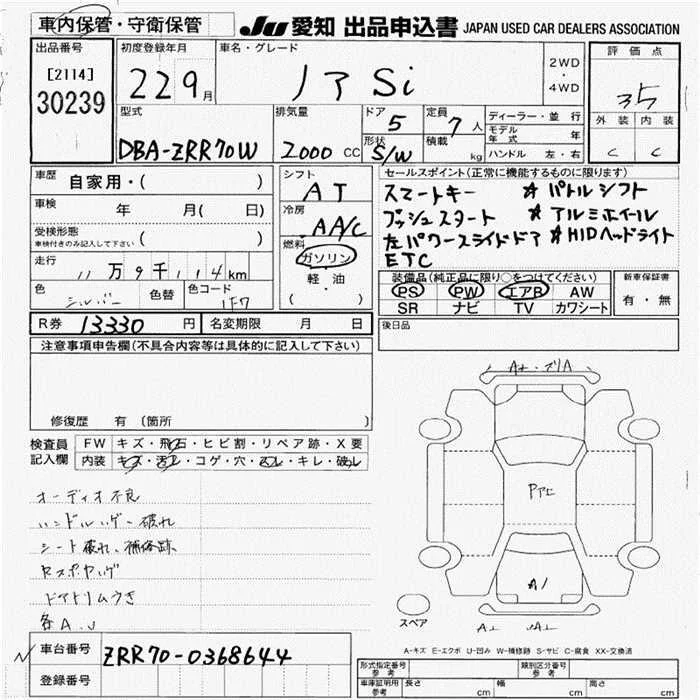 車内保管・守衛保管
JU 愛知 出品申込書 JAPAN USED CAR DEALERS ASSOCIATION
出品番号
[2114]
30239
初度登録年月
22 9月
車名・グレード
ノア Si
2WD
・
4WD
評価点
3.5
外装 内装
C C
型式
DBA-ZRR70W
排気量
2000 CC
ドア
5
形状
S/W
定員
7人
積載
kg
ディーラー・並行
モデル年式 年
ハンドル 左・右
車歴
自家用・( )
車検
年 月( 日)
受検形態
車検付きのみ記入して下さい ( )
走行
11万9千114km
色
シルバー
色替
色コード
1F7
シフト
AT
冷房
AA/C
燃料
ガソリン
軽・油
( )
セールスポイント(正常に機能するものに限ります)
スマートキー ＊パドルシフト
プッシュスタート ＊アルミホイール
左パワースライドドア ＊HIDヘッドライト
ETC
装備品(純正品に限り○をつけてください)
PS PW エアB AW
SR ナビ TV カワシート
新車保証書
有・無
後日品
R券 13330 円 名変期限 月 日
注意事項申告欄(不具合内容等は具体的に記入して下さい)
修復歴 有 (箇所 )
検査員
記入欄
FW キズ・飛石・ヒビ割・リペア跡・X要
内装 キズ・汚レ・コゲ・穴・凹レ・キレ・破レ
オーディオ不良
ハンドルハゲー破れ
シート破れ、補修跡
ドアトリムうき
各A.U
A1
スペア
A-キズ E-エクボ U-凹み W-補修跡 S-サビ C-腐食 XX-交換済
車台番号 ZRR70-0368644
登録番号
形式指定番号
参考
類別区分番号
参考
車庫証明用
参考
長さ cm 巾 cm 高さ cm